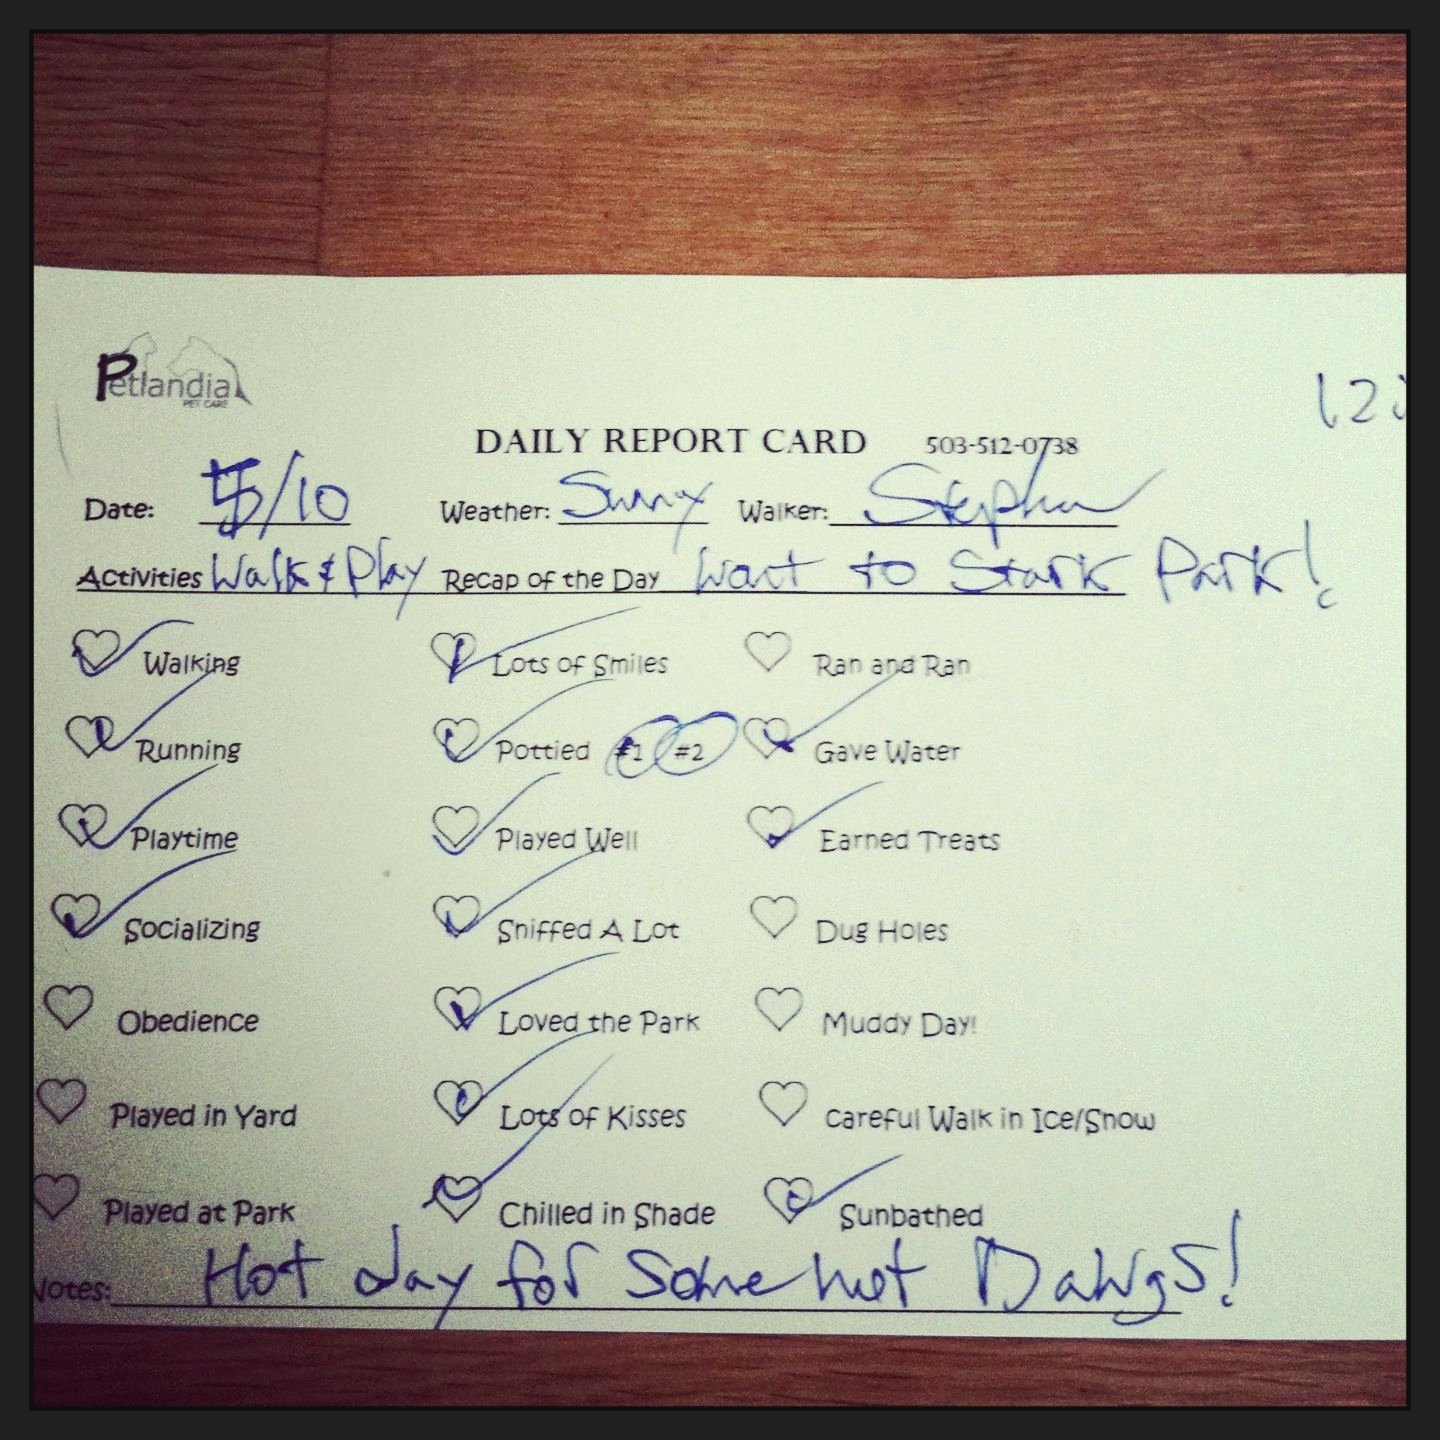 Petlandia
PET CARE
12
DAILY REPORT CARD 503-512-0738
Date: 5/10 Weather: Sunny Walker: Stephen
Activities Walk & Play Recap of the Day Want to Stark Park!
Walking Lots of Smiles Ran and Ran
Running Pottied #1 #2 Gave Water
Playtime Played Well Earned Treats
Socializing Sniffed A Lot Dug Holes
Obedience Loved the Park Muddy Day!
Played in Yard Lots of Kisses careful Walk in Ice/Snow
Played at Park Chilled in Shade Sunbathed
Notes: Hot day for Some hot Dawgs!